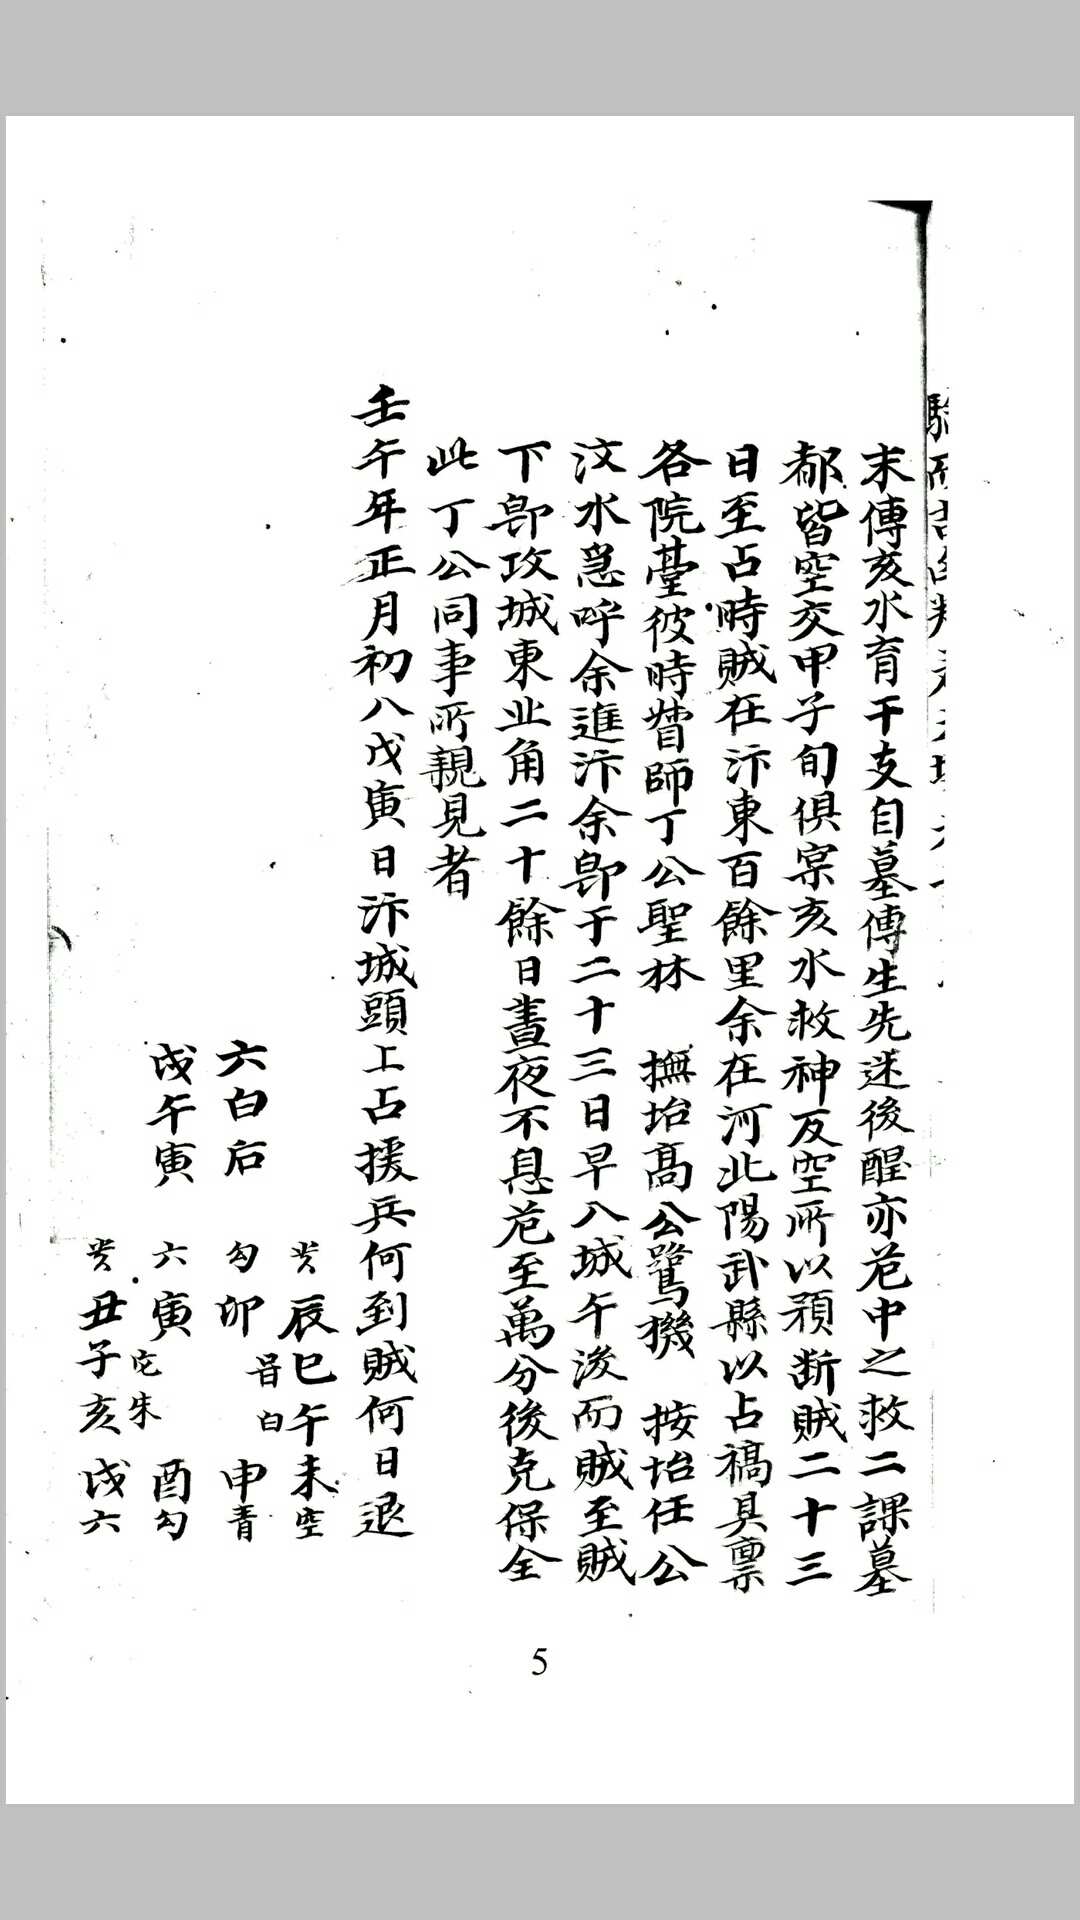 末傳亥水育干支自墓傳生先迷後醒亦危中之救二課墓
都皆空交甲子旬俱寀亥水救神反空所以預断賊二十三
日至占時賊在汴東百餘里余在河北陽武縣以占稿具禀
各院臺彼時督師丁公聖林 撫治高公鷺機 按治任公
汶水急呼余進汴余即于二十三日早八城午後而賊至賊
下即攻城東北角二十餘日晝夜不息危至萬分後克保全
此丁公同事所親見者
壬午年正月初八戊寅日汴城頭上占援兵何到賊何日退
贵辰巳午未空
常白
六白后 勾卯 申青
戌午寅 六寅 酉勾
它朱
贵丑子亥戌六
5